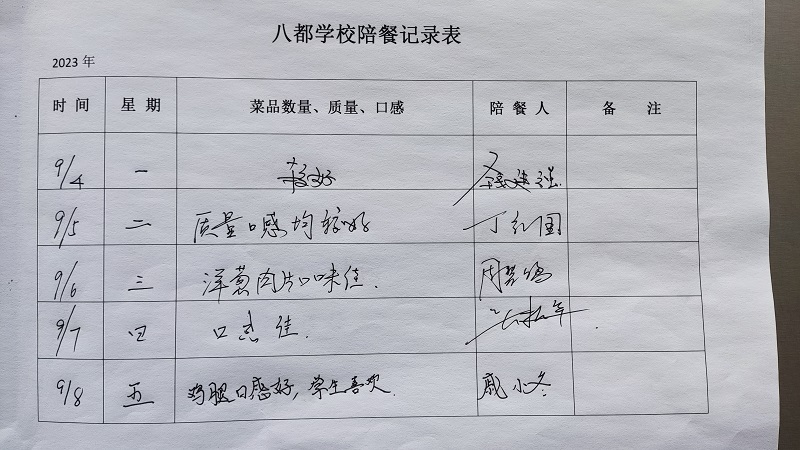 八都学校陪餐记录表
2023 年
时 间 星 期 菜品数量、质量、口感 陪 餐 人 备 注
9/4 一 较好
9/5 二 质量口感均较好 丁红国
9/6 三 洋葱肉片口味佳.
9/7 四 口感佳.
9/8 五 鸡腿口感好,学生喜欢. 戚小冬